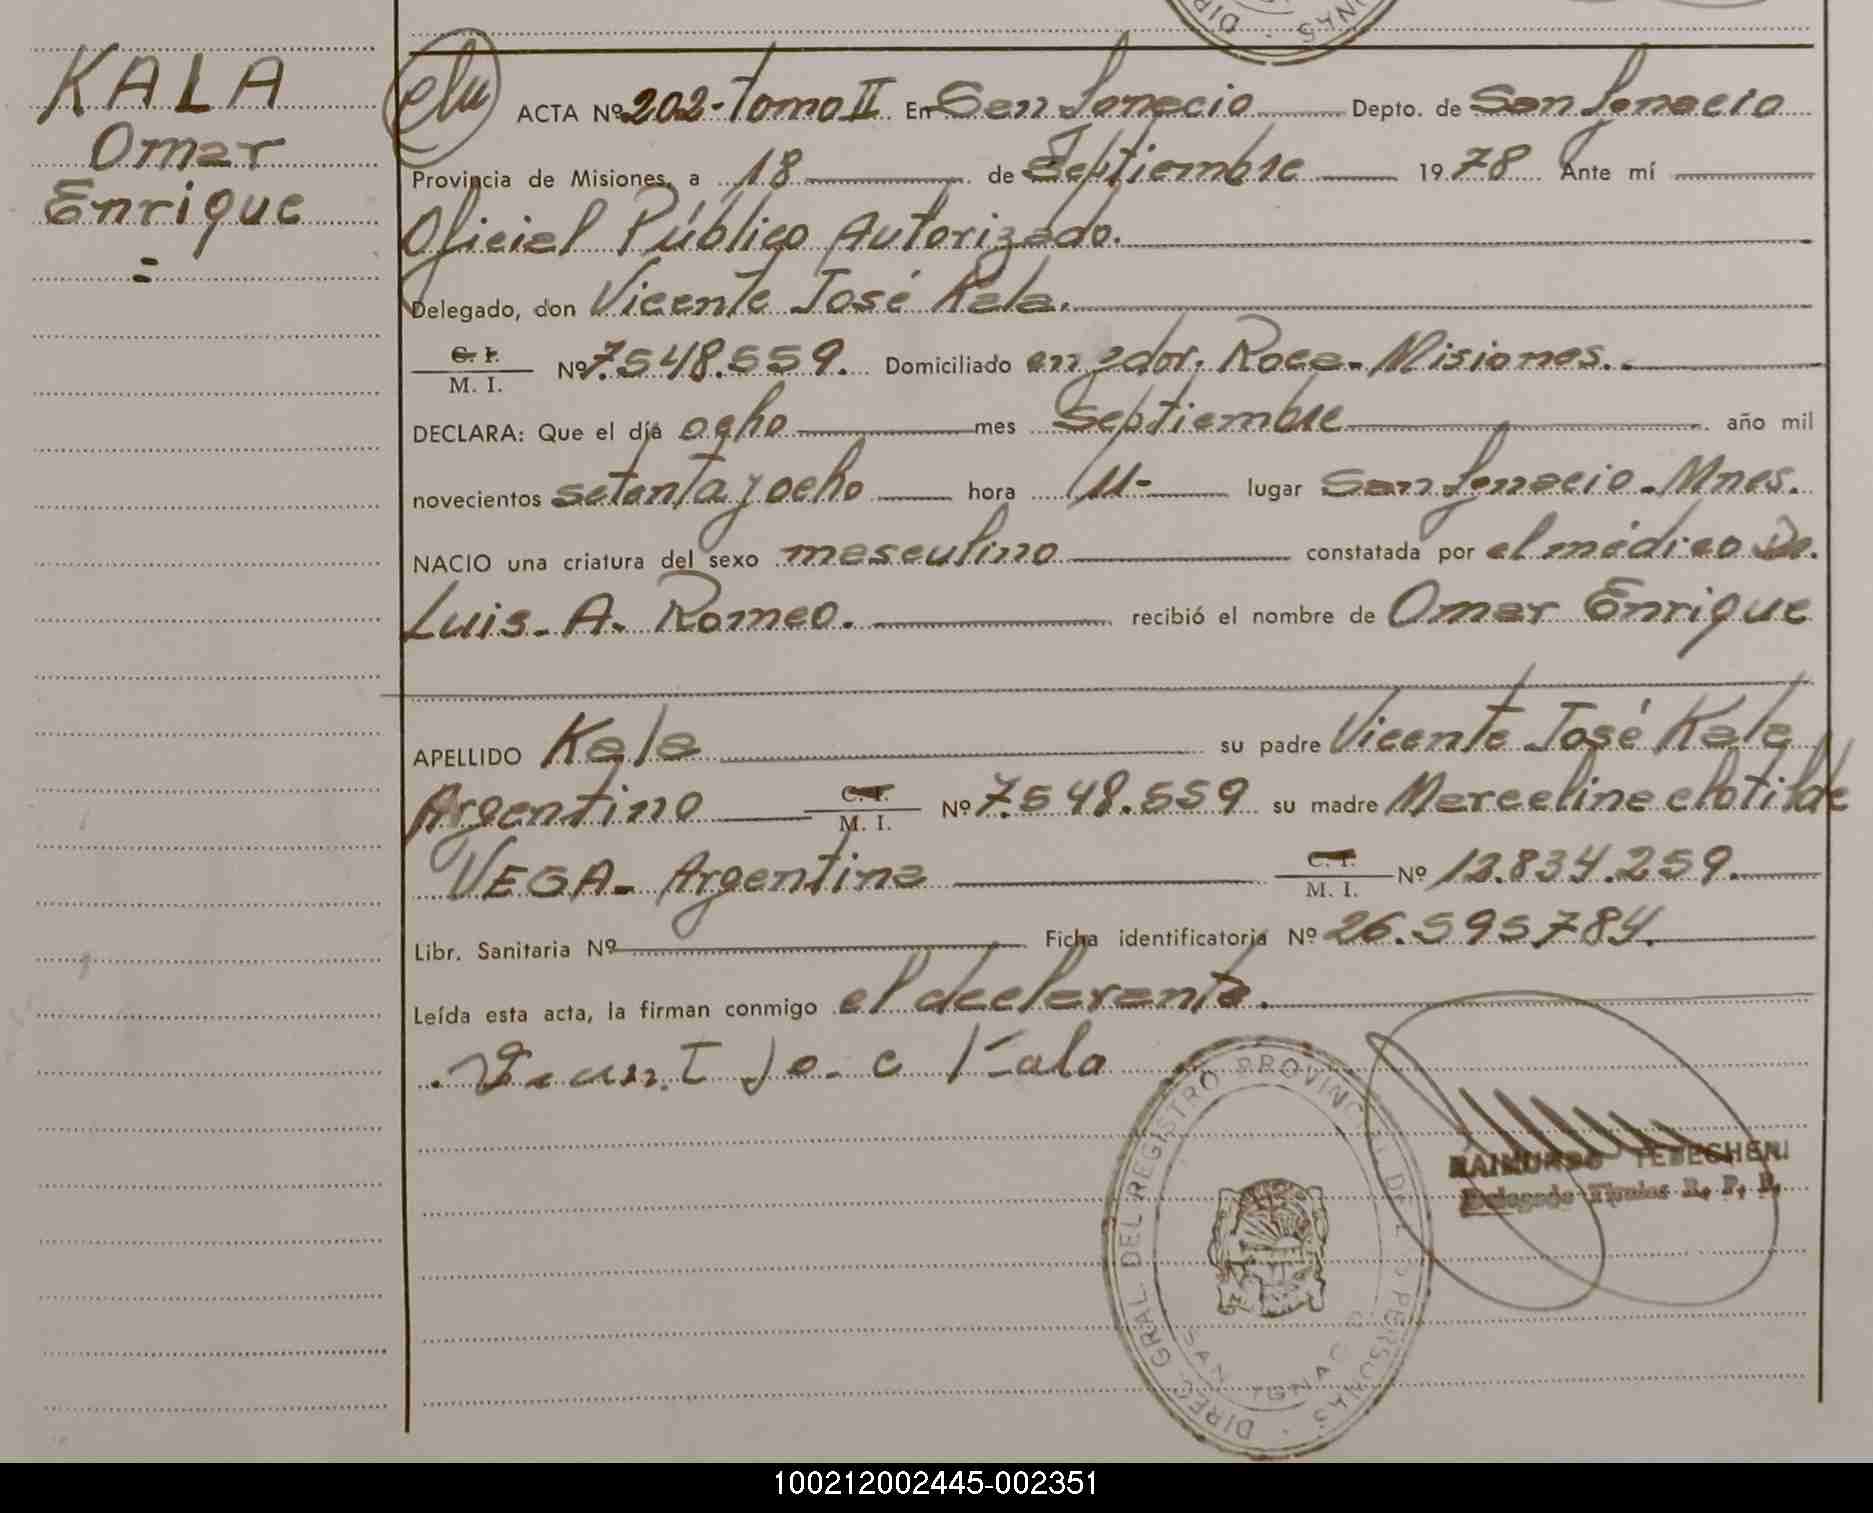 KALA
Omar
Enrique
=
ACTA Nº 202-tomo II En San Ignacio Depto. de San Ignacio
Provincia de Misiones, a 18 de Septiembre 1978 Ante mí
Oficial Público Autorizado.
Delegado, don Vicente José Kala.
C. I.
M. I. Nº 7.548.559. Domiciliado en gdor. Roca-Misiones.
DECLARA: Que el día ocho mes Septiembre año mil
novecientos setenta y ocho hora 11- lugar San Ignacio-Mnes.
NACIO una criatura del sexo masculino constatada por el médico Dr.
Luis-A- Romeo. recibió el nombre de Omar Enrique
APELLIDO Kala su padre Vicente José Kala
Argentino C. I.
M. I. Nº 7.548.559 su madre Marcelina clotilde
VEGA- Argentina C. I.
M. I. Nº 12.834.259.
Libr. Sanitaria Nº Ficha identificatoria Nº 26.595784.
Leída esta acta, la firman conmigo el declarante.
Kala
DIREC. GRAL. DEL REGISTRO PROVINCIAL DE LAS PERSONAS
SAN IGNACIO
RAIMUNDO TEBECHERI
Delegado Titular R. P. P.
100212002445-002351